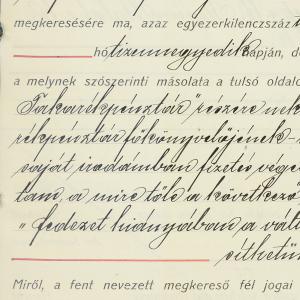 megkeresésére ma, azaz egyezerkilenczszáz
hó tizennegyedik napján, d
a melynek szószerinti másolata a tulsó oldal
Takarékpénztár" részére nek
rékpénztár főkönyvelőjének
saját irodámban fizetés vége
tam, a mire tőle a következő
"fedezet hiányában a vál
sithetün
Miről, a fent nevezett megkereső fél jogai